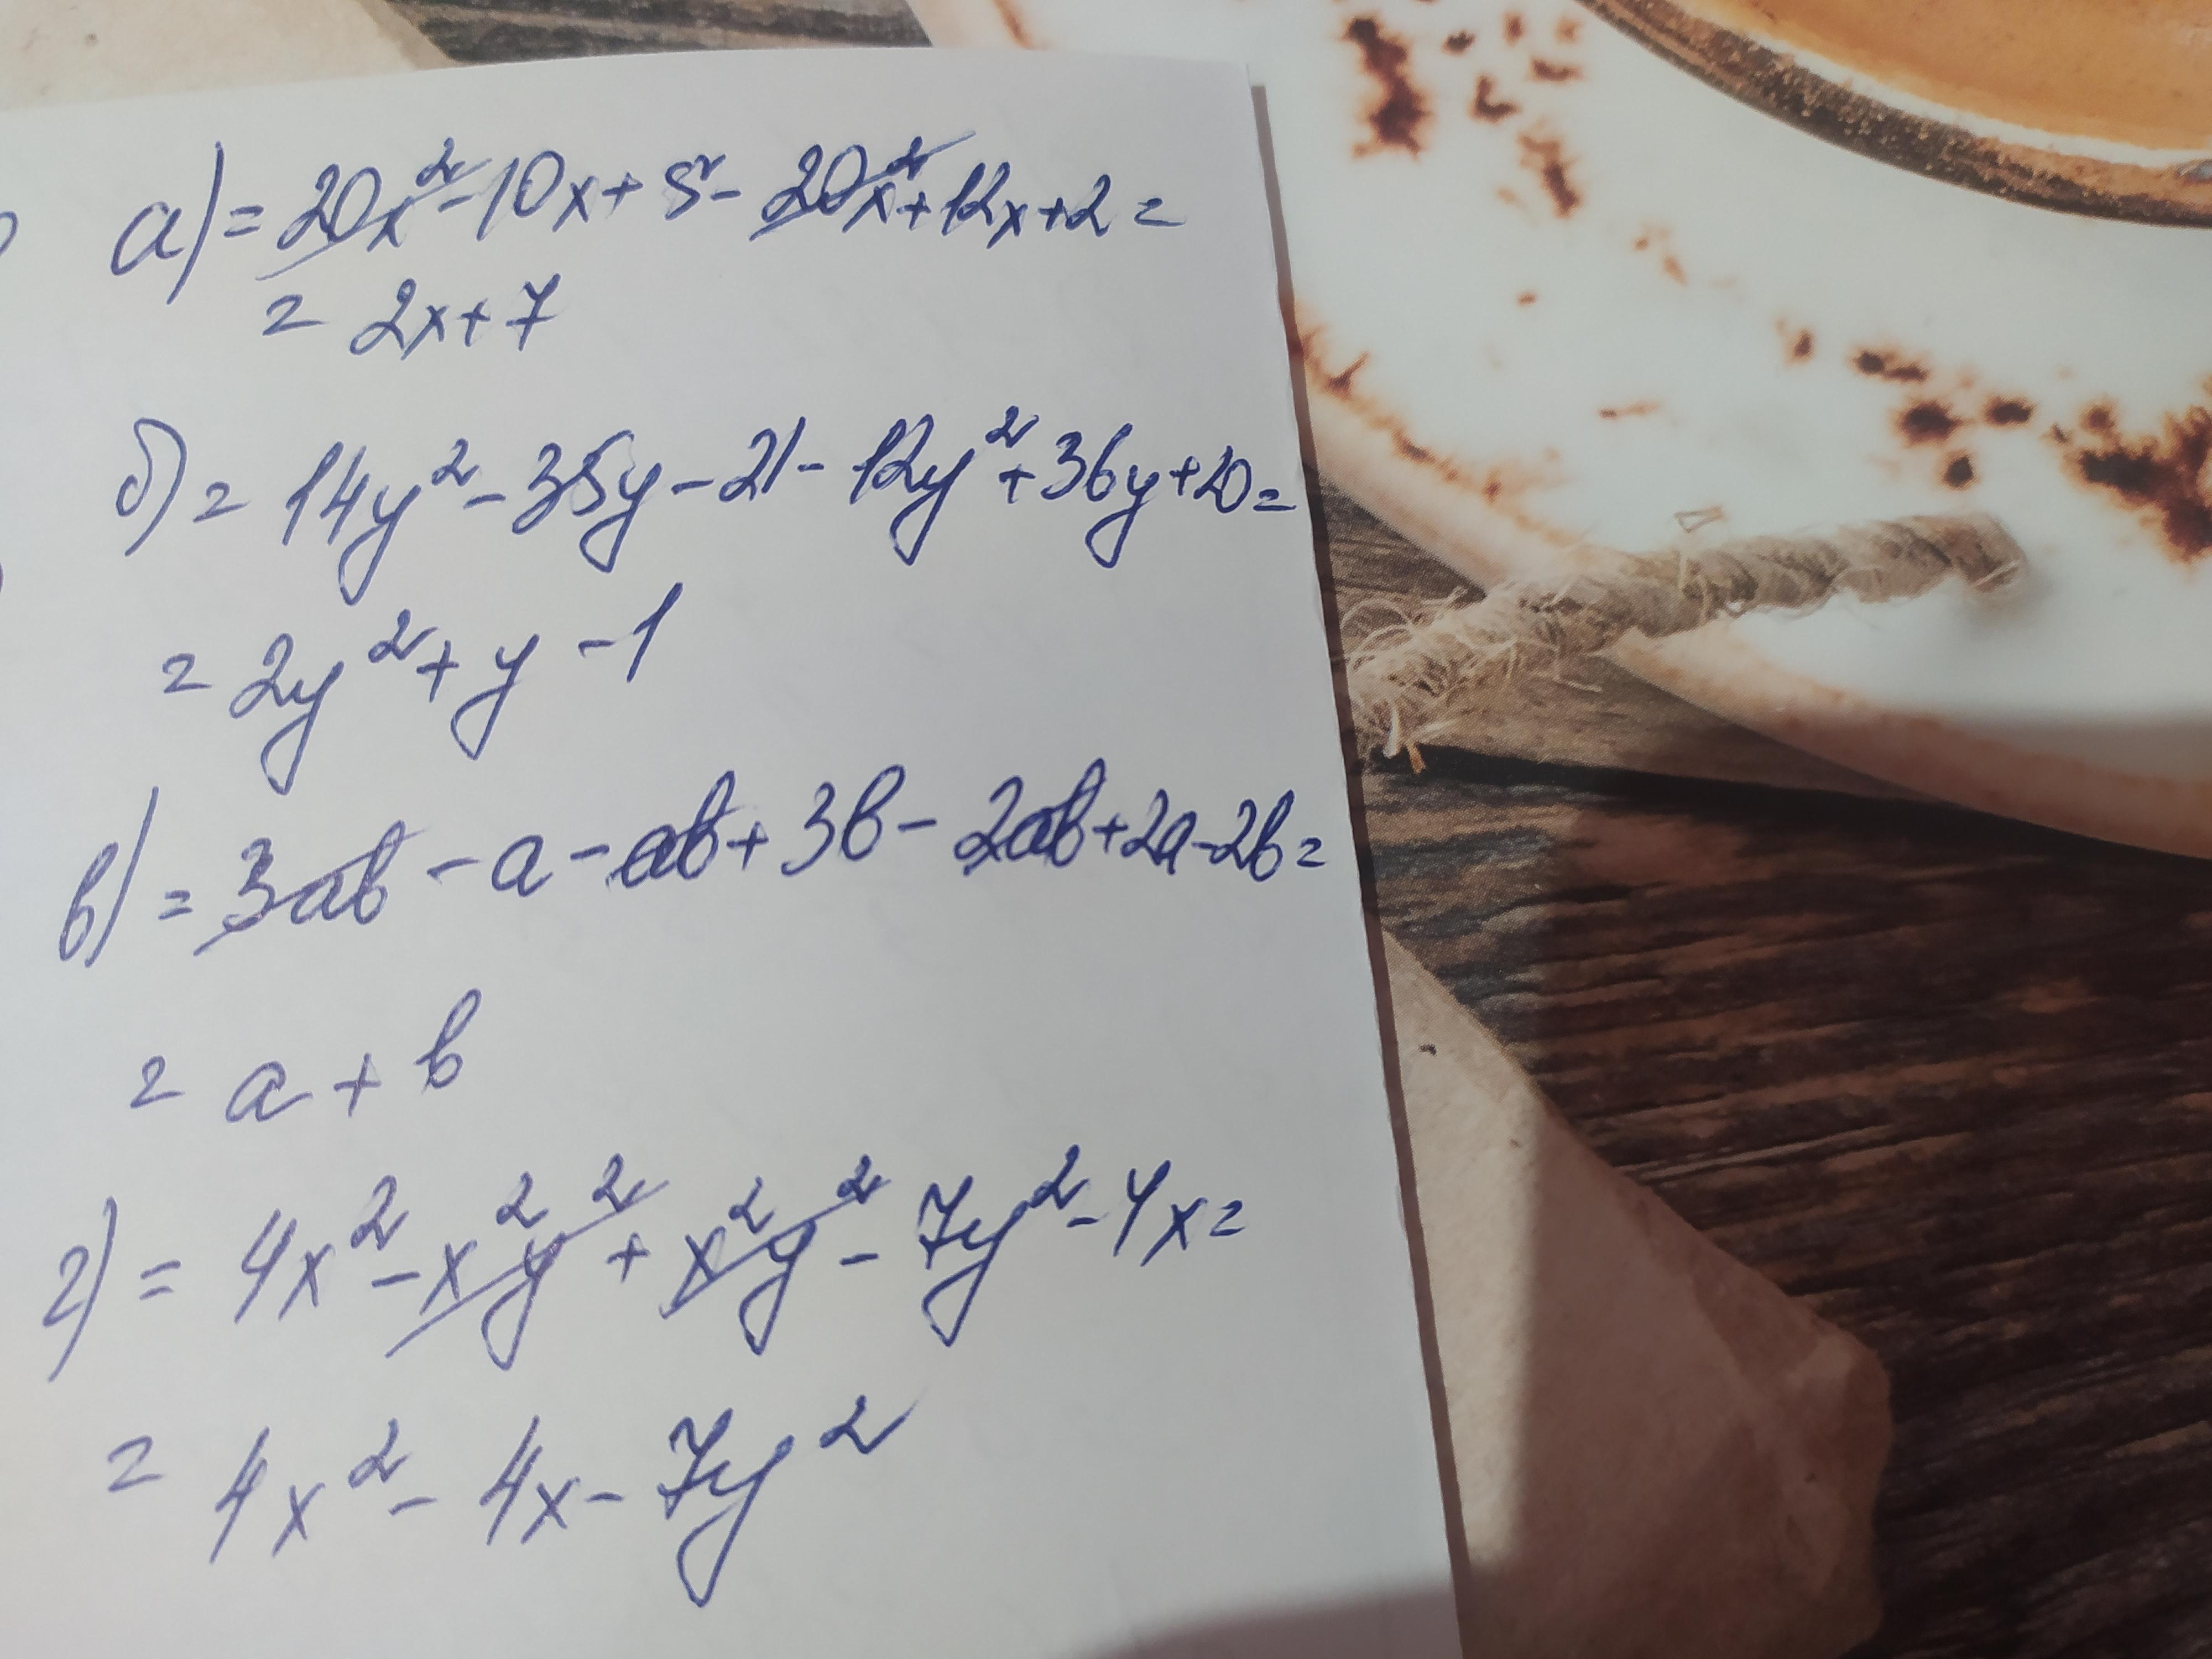 а) = 20x² - 10x + 5 - 20x² + 12x + 2 =
= 2x + 7
б) = 14y² - 35y - 21 - 12y² + 36y + 20 =
= 2y² + y - 1
в) = 3ab - a - ab + 3b - 2ab + 2a - 2b =
= a + b
г) = 4x² - x²y² + x²y² - 7y² - 4x =
= 4x² - 4x - 7y²